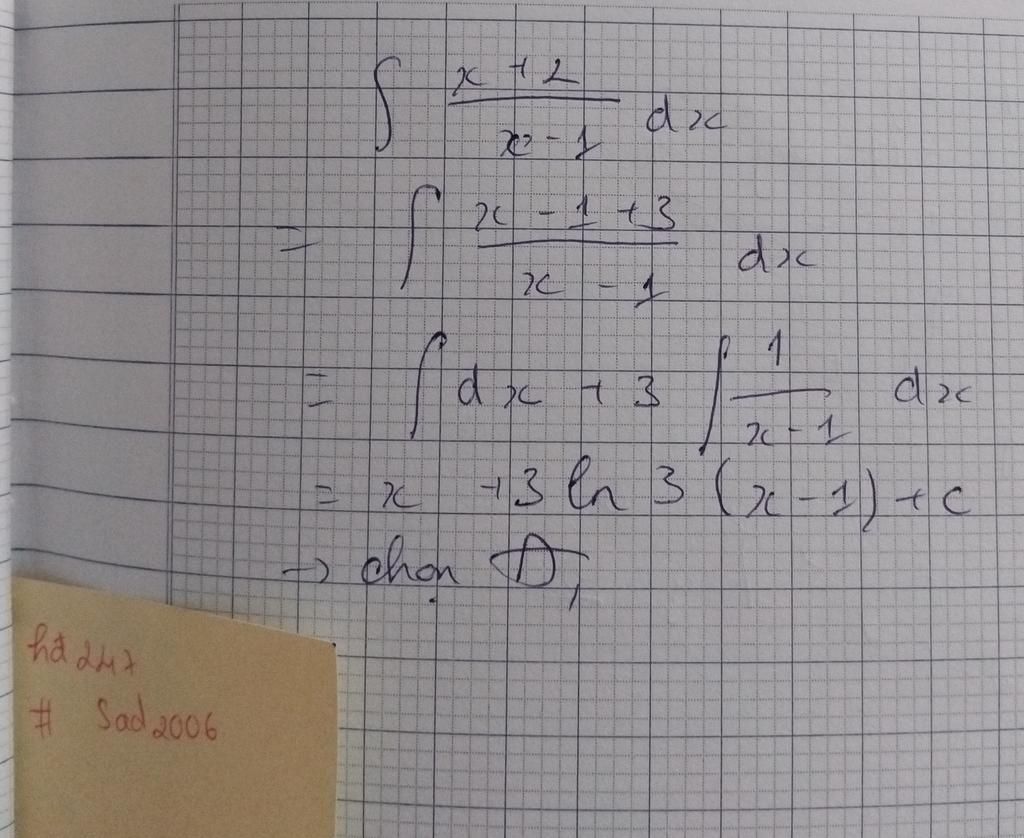 ∫ (x + 2)/(x - 1) dx
= ∫ (x - 1 + 3)/(x - 1) dx
= ∫ dx + 3 ∫ 1/(x - 1) dx
= x + 3 ln 3 (x - 1) + c
→ chọn
hd 247
# Sad2006